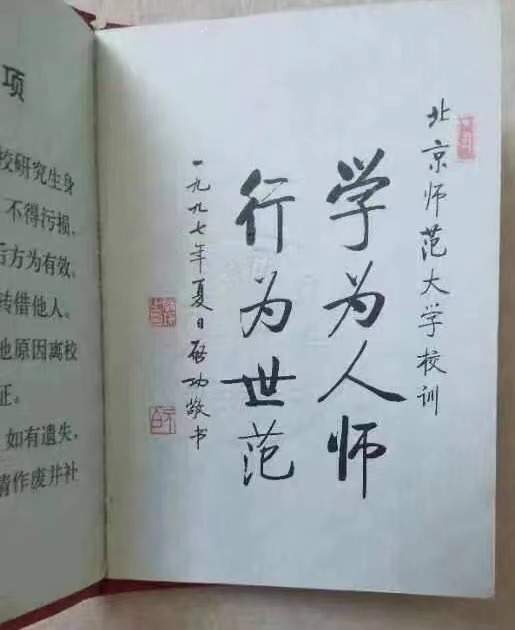 项
校研究生身
不得污损,
后方为有效。
转借他人。
他原因离校
证。
如有遗失,
请作废并补
北京师范大学校训
学为人师
行为世范
一九九七年夏日启功敬书